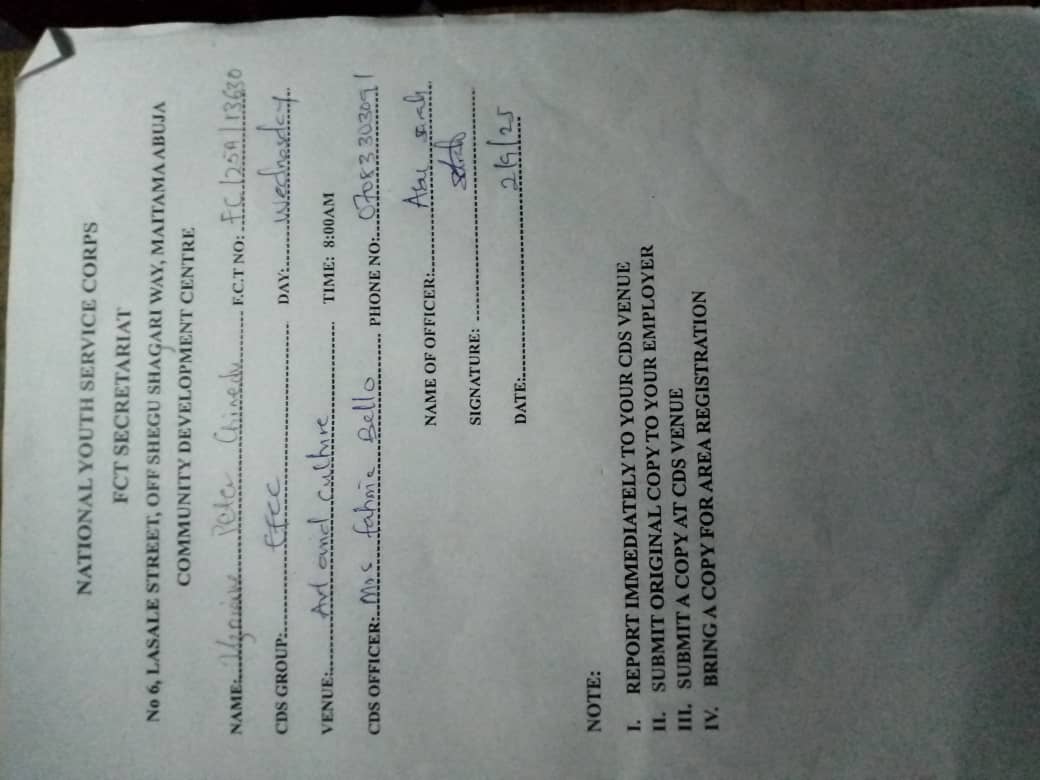 NATIONAL YOUTH SERVICE CORPS
FCT SECRETARIAT
No 6, LASALE STREET, OFF SHEGU SHAGARI WAY, MAITAMA ABUJA
COMMUNITY DEVELOPMENT CENTRE
NAME: Peter Chinedu F.C.T NO: FC/25A/13630
CDS GROUP: EFCC DAY: Wednesday
VENUE: Art and Culture TIME: 8:00AM
CDS OFFICER: Mrs Bello PHONE NO: 07083303091
NAME OF OFFICER: Sarah
SIGNATURE:
DATE: 2/9/25
NOTE:
I. REPORT IMMEDIATELY TO YOUR CDS VENUE
II. SUBMIT ORIGINAL COPY TO YOUR EMPLOYER
III. SUBMIT A COPY AT CDS VENUE
IV. BRING A COPY FOR AREA REGISTRATION